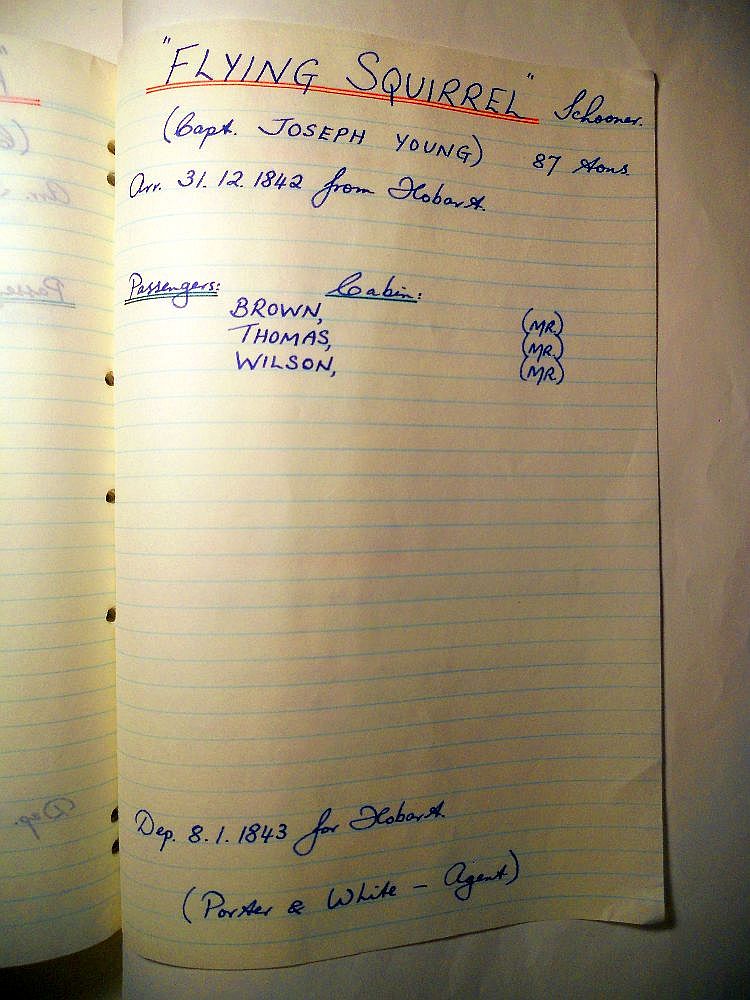 "FLYING SQUIRREL" Schooner.
(Capt. JOSEPH YOUNG) 87 tons
Arr. 31.12.1842 from Hobart.
Passengers: Cabin:
BROWN, (MR.)
THOMAS, (MR.)
WILSON, (MR.)
Dep. 8.1.1843 for Hobart.
(Porter & White - Agent)